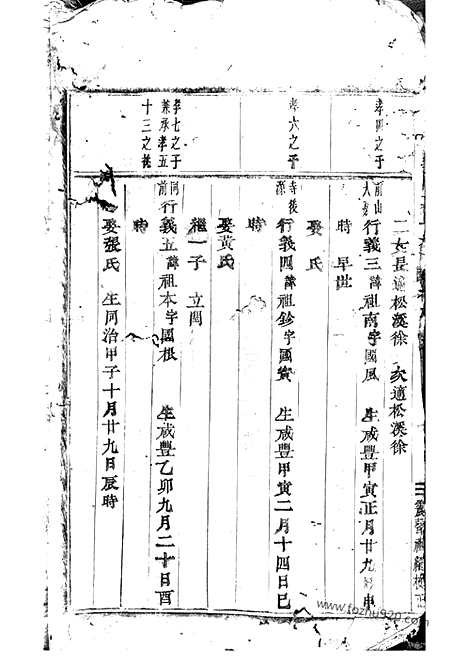 二女長適松溪徐 次適松溪徐
孝四之子
前山
行義三諱祖南字國風 生咸豐甲寅正月廿九日申
時 早世
娶 氏
孝六之子
寺後
行義四諱祖鈔字國賓 生咸豐甲寅二月十四日巳
時
娶黃氏
繼一子 立閏
孝七之子
兼承孝五
十三之祧
同前
行義五諱祖本字國根 生咸豐乙卯九月二十日酉
時
娶張氏 生同治甲子十月廿九日辰時
www.fozhu920.com